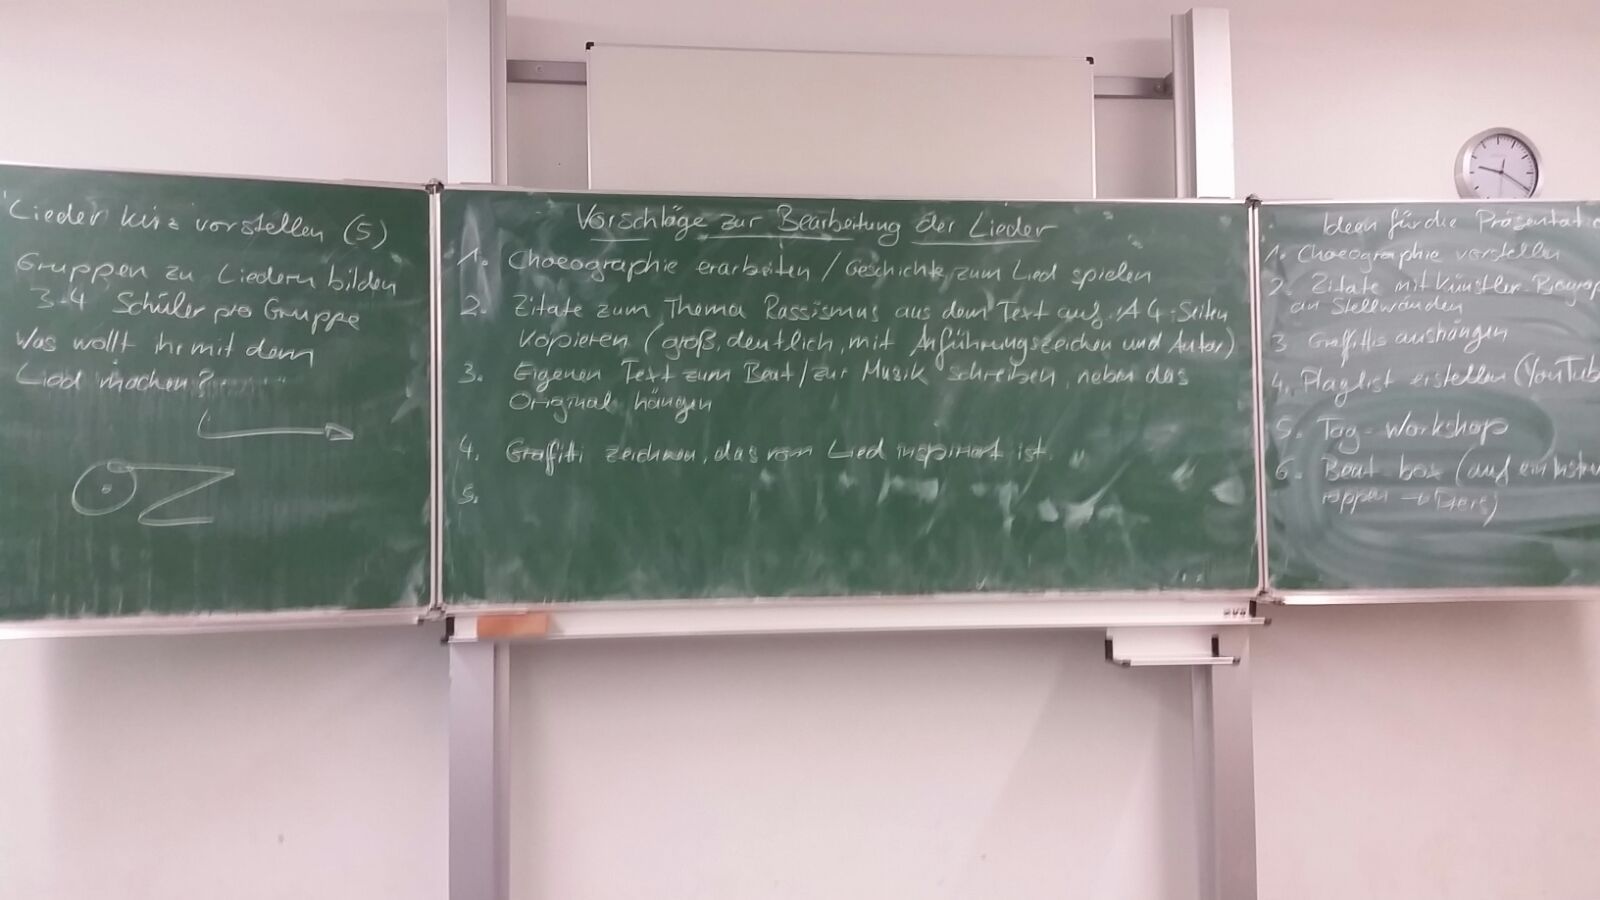 Lieder kurz vorstellen (5)
Gruppen zu Liedern bilden
3-4 Schüler pro Gruppe
Was wollt ihr mit dem
Lied machen?
OZ
Vorschläge zur Bearbeitung der Lieder
1. Choeographie erarbeiten / Geschichte zum Lied spielen
2. Zitate zum Thema Rassismus aus dem Text auf A4-Seiten
kopieren (groß, deutlich, mit Anführungszeichen und Autor)
3. Eigenen Text zum Beat / zur Musik schreiben, neben das
Original hängen
4. Graffiti zeichnen, das vom Lied inspiriert ist.
5.
Ideen für die Präsentatio
1. Choeographie vorstellen
2. Zitate mit Künstler-Biograp
an Stellwänden
3 Graffitis aushängen
4. Playlist erstellen (YouTub
5. Tag-Workshop
6. Beat box (auf ein Instru
rappen →